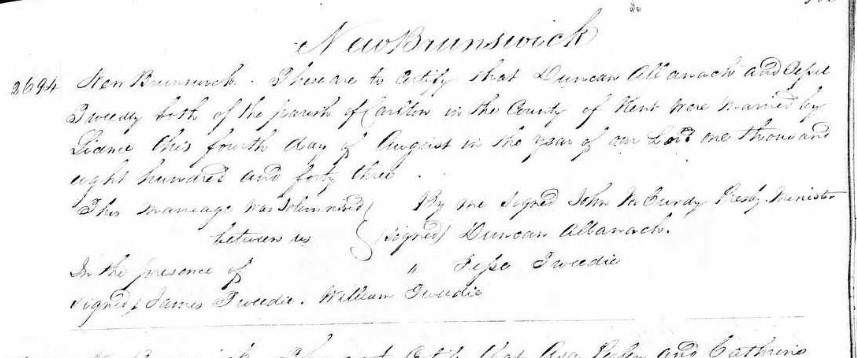 New Brunswick
2694 New Brunswick. These are to Certify that Duncan Albanach and Jesse
Tweedy both of the parish of Carlton in the County of Kent were married by
Licence this fourth day of August in the year of our Lord one thousand
eight hundred and forty three.
This marriage was solemnized ( By me signed John McCurdy Presby. Minister
between us (signed) Duncan Albanach.
In the presence of " Jesse Tweedie
signed) James Tweedie. William Tweedie
New Brunswick These are to Certify that and Catherine